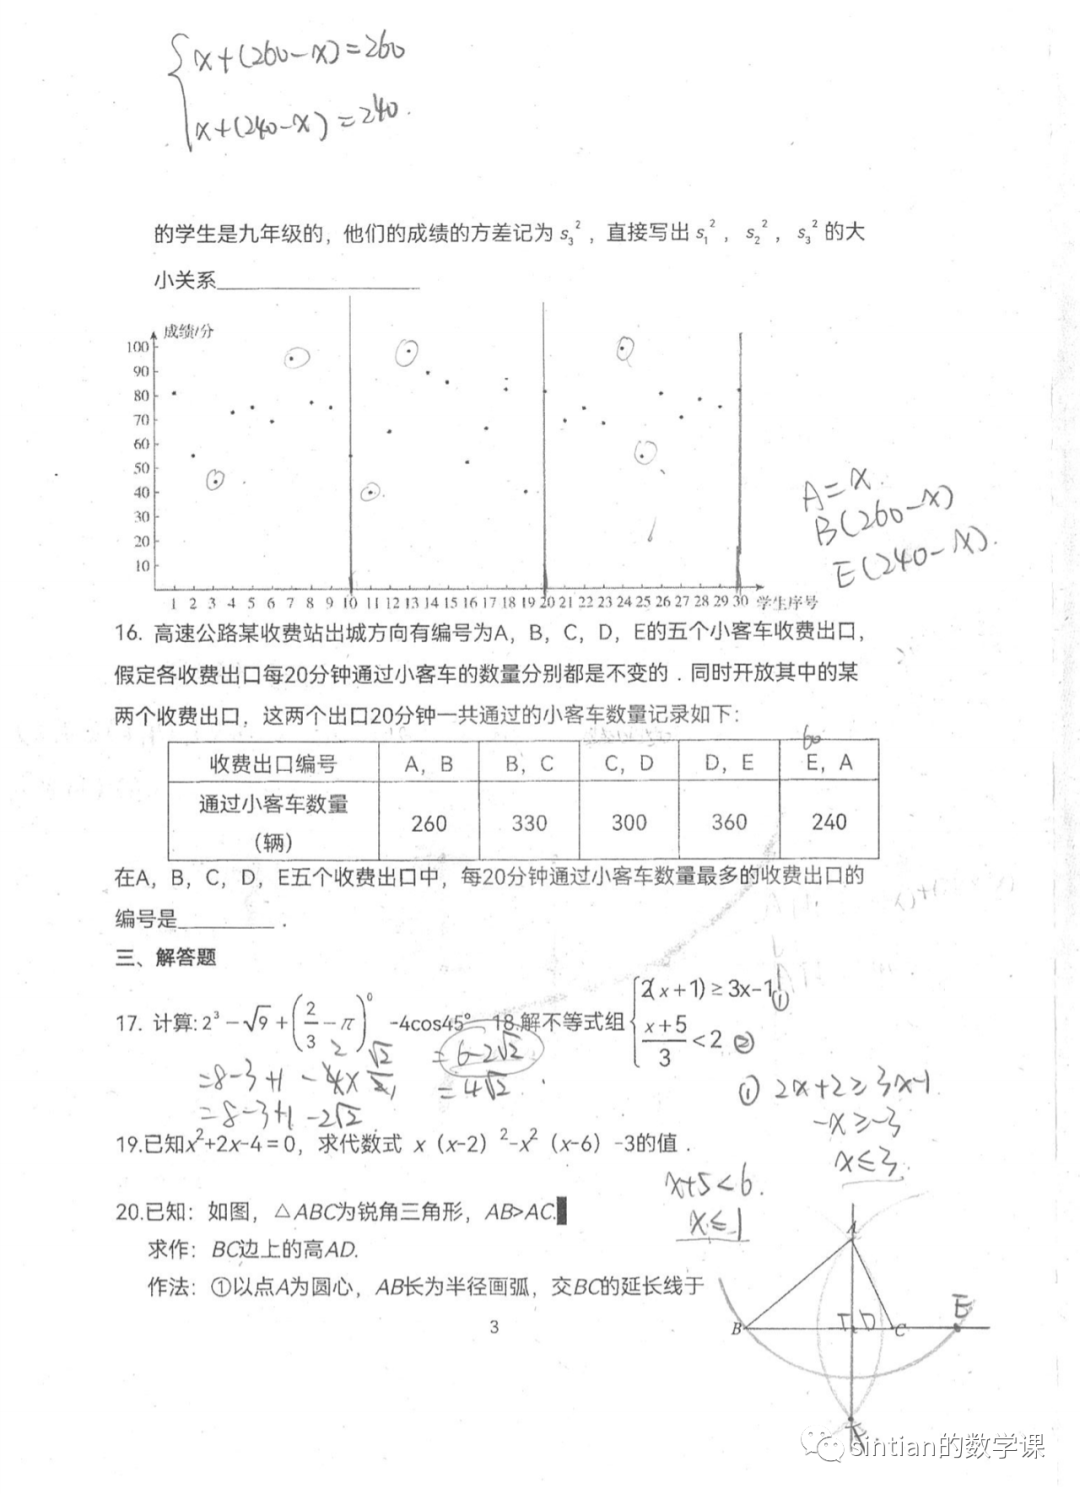 x+(260-x)=260
x+(240-x)=240.
的学生是九年级的，他们的成绩的方差记为 s₃²，直接写出 s₁²，s₂²，s₃² 的大
小关系
成绩/分
100
90
80
70
60
50
40
30
20
10
1 2 3 4 5 6 7 8 9 10 11 12 13 14 15 16 17 18 19 20 21 22 23 24 25 26 27 28 29 30 学生序号
A=x.
B(260-x)
E(240-x).
16. 高速公路某收费站出城方向有编号为A，B，C，D，E的五个小客车收费出口，
假定各收费出口每20分钟通过小客车的数量分别都是不变的．同时开放其中的某
两个收费出口，这两个出口20分钟一共通过的小客车数量记录如下：
60
收费出口编号 A，B B，C C，D D，E E，A
通过小客车数量
（辆） 260 330 300 360 240
在A，B，C，D，E五个收费出口中，每20分钟通过小客车数量最多的收费出口的
编号是________．
三、解答题
17. 计算: 2³-√9+(2/3-π)⁰-4cos45° 18.解不等式组 2(x+1)≥3x-1 ①
(x+5)/3<2 ②
=8-3+1-4×√2/2
=8-3+1-2√2
=6-2√2
=4√2.
① 2x+2≥3x-1
-x≥-3
x≤3.
x+5<6.
x≤1
19.已知x²+2x-4=0，求代数式 x（x-2）²-x²（x-6）-3的值．
20.已知：如图，△ABC为锐角三角形，AB>AC.
求作：BC边上的高AD.
作法：①以点A为圆心，AB长为半径画弧，交BC的延长线于
A
B
D
C
E
F
3
sintian的数学课